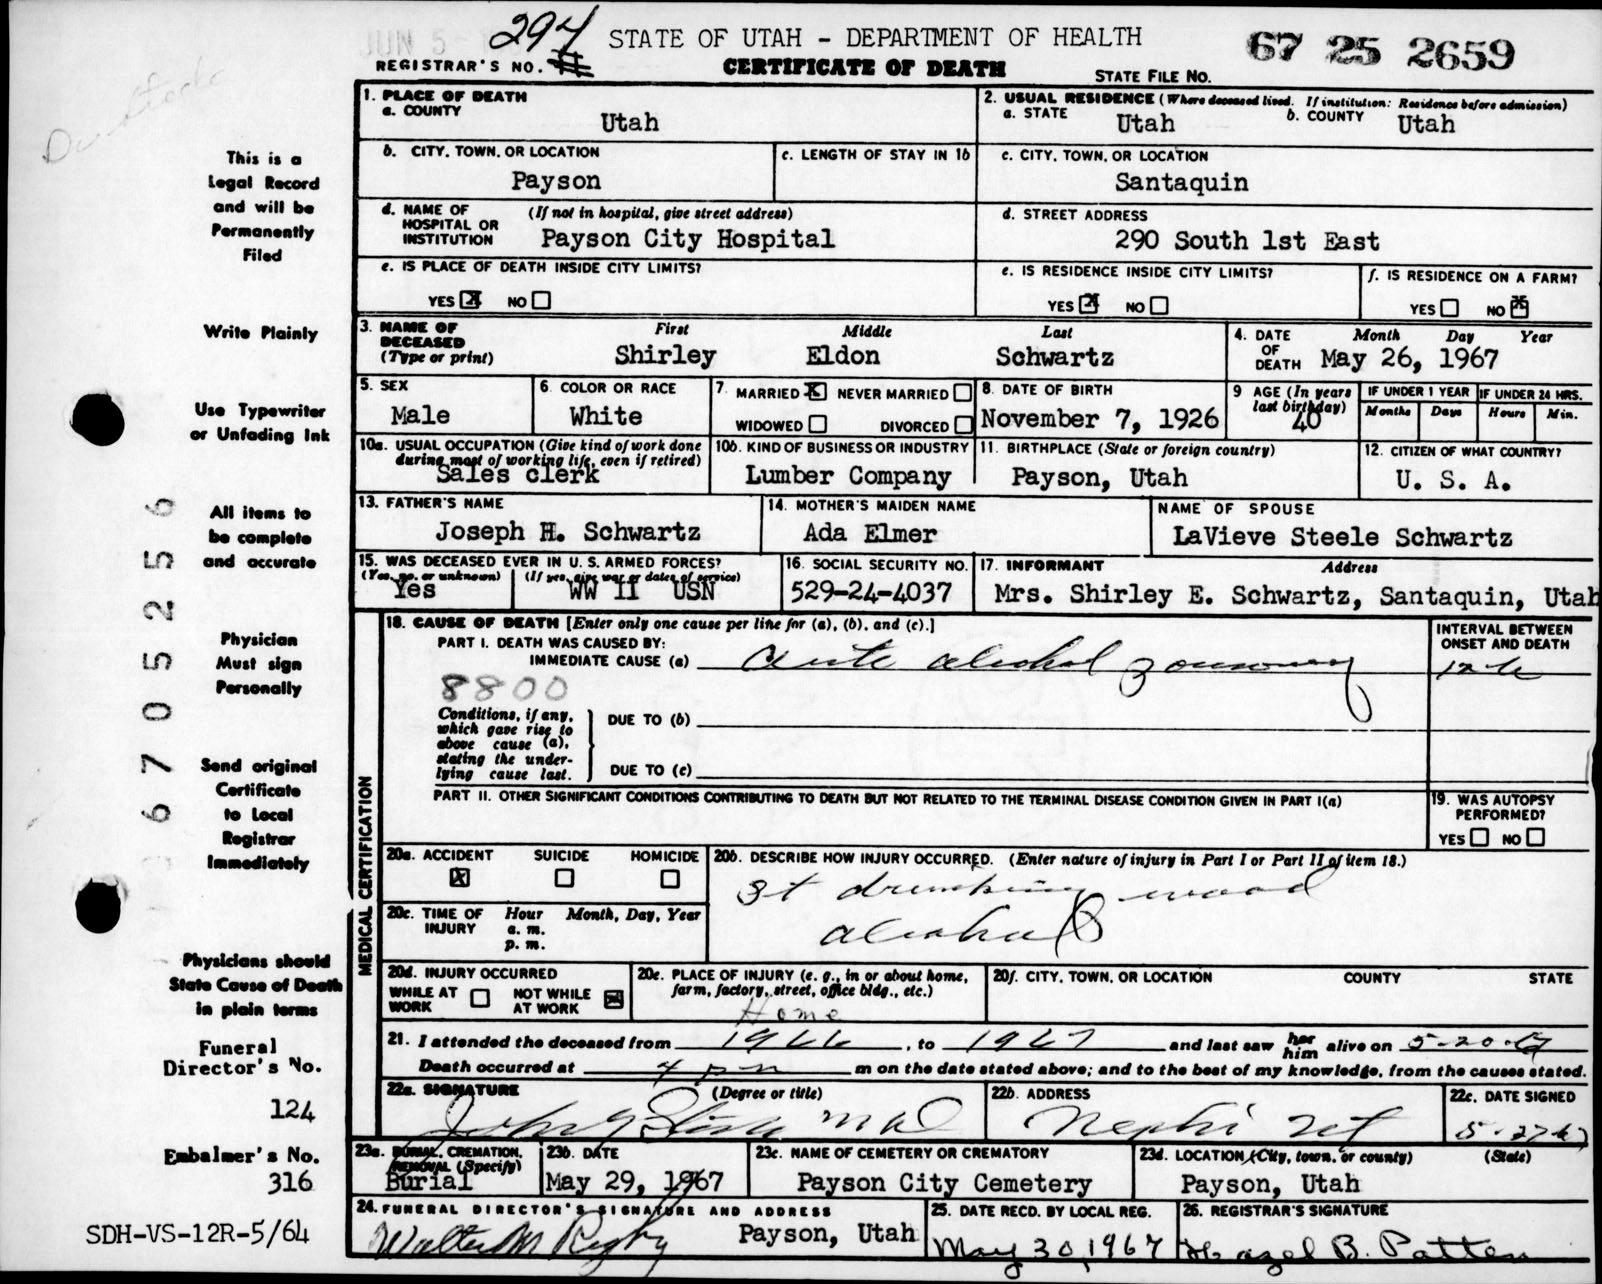 JUN 5
294
STATE OF UTAH - DEPARTMENT OF HEALTH
67 25 2659
REGISTRAR'S NO.
CERTIFICATE OF DEATH
STATE FILE NO.
1. PLACE OF DEATH
a. COUNTY
Utah
2. USUAL RESIDENCE (Where deceased lived. If institution: Residence before admission)
a. STATE
Utah
b. COUNTY
Utah
b. CITY, TOWN, OR LOCATION
Payson
c. LENGTH OF STAY IN 1b
c. CITY, TOWN, OR LOCATION
Santaquin
d. NAME OF HOSPITAL OR INSTITUTION
(If not in hospital, give street address)
Payson City Hospital
d. STREET ADDRESS
290 South 1st East
e. IS PLACE OF DEATH INSIDE CITY LIMITS?
YES X NO
e. IS RESIDENCE INSIDE CITY LIMITS?
YES X NO
f. IS RESIDENCE ON A FARM?
YES NO X
3. NAME OF DECEASED (Type or print)
First Middle Last
Shirley Eldon Schwartz
4. DATE OF DEATH
Month Day Year
May 26, 1967
5. SEX
Male
6. COLOR OR RACE
White
7. MARRIED X NEVER MARRIED
WIDOWED DIVORCED
8. DATE OF BIRTH
November 7, 1926
9 AGE (In years last birthday)
40
IF UNDER 1 YEAR
Months Days
IF UNDER 24 HRS.
Hours Min.
10a. USUAL OCCUPATION (Give kind of work done during most of working life, even if retired)
Sales clerk
10b. KIND OF BUSINESS OR INDUSTRY
Lumber Company
11. BIRTHPLACE (State or foreign country)
Payson, Utah
12. CITIZEN OF WHAT COUNTRY?
U. S. A.
13. FATHER'S NAME
Joseph H. Schwartz
14. MOTHER'S MAIDEN NAME
Ada Elmer
NAME OF SPOUSE
LaVieve Steele Schwartz
15. WAS DECEASED EVER IN U. S. ARMED FORCES?
(Yes, no, or unknown) (If yes, give war or dates of service)
Yes WW II USN
16. SOCIAL SECURITY NO.
529-24-4037
17. INFORMANT Address
Mrs. Shirley E. Schwartz, Santaquin, Utah
MEDICAL CERTIFICATION
18. CAUSE OF DEATH [Enter only one cause per line for (a), (b), and (c).]
PART I. DEATH WAS CAUSED BY:
IMMEDIATE CAUSE (a) Acute alcohol poisoning
INTERVAL BETWEEN ONSET AND DEATH
8800
Conditions, if any, which gave rise to above cause (a), stating the underlying cause last.
DUE TO (b)
DUE TO (c)
PART II. OTHER SIGNIFICANT CONDITIONS CONTRIBUTING TO DEATH BUT NOT RELATED TO THE TERMINAL DISEASE CONDITION GIVEN IN PART I(a)
19. WAS AUTOPSY PERFORMED?
YES NO
20a. ACCIDENT SUICIDE HOMICIDE
X
20b. DESCRIBE HOW INJURY OCCURRED. (Enter nature of injury in Part I or Part II of item 18.)
drinking wood
alcohol
20c. TIME OF INJURY
Hour Month, Day, Year
a. m.
p. m.
20d. INJURY OCCURRED
WHILE AT WORK NOT WHILE AT WORK X
20e. PLACE OF INJURY (e. g., in or about home, farm, factory, street, office bldg., etc.)
Home
20f. CITY, TOWN, OR LOCATION COUNTY STATE
21. I attended the deceased from 1966, to 1967 and last saw her him alive on 5-20-67
Death occurred at 4 pm m on the date stated above; and to the best of my knowledge, from the causes stated.
22a. SIGNATURE (Degree or title)
John M D
22b. ADDRESS
Nephi Ut
22c. DATE SIGNED
5-27-67
23a. BURIAL, CREMATION, REMOVAL (Specify)
Burial
23b. DATE
May 29, 1967
23c. NAME OF CEMETERY OR CREMATORY
Payson City Cemetery
23d. LOCATION (City, town, or county) (State)
Payson, Utah
24. FUNERAL DIRECTOR'S SIGNATURE AND ADDRESS
Walter M Rigby Payson, Utah
25. DATE RECD. BY LOCAL REG.
May 30, 1967
26. REGISTRAR'S SIGNATURE
Hazel B. Patten
This is a
Legal Record
and will be
Permanently
Filed
Write Plainly
Use Typewriter
or Unfading Ink
All items to
be complete
and accurate
Physician
Must sign
Personally
Send original
Certificate
to Local
Registrar
Immediately
Physicians should
State Cause of Death
in plain terms
Funeral
Director's No.
124
Embalmer's No.
316
SDH-VS-12R-5/64
67052556